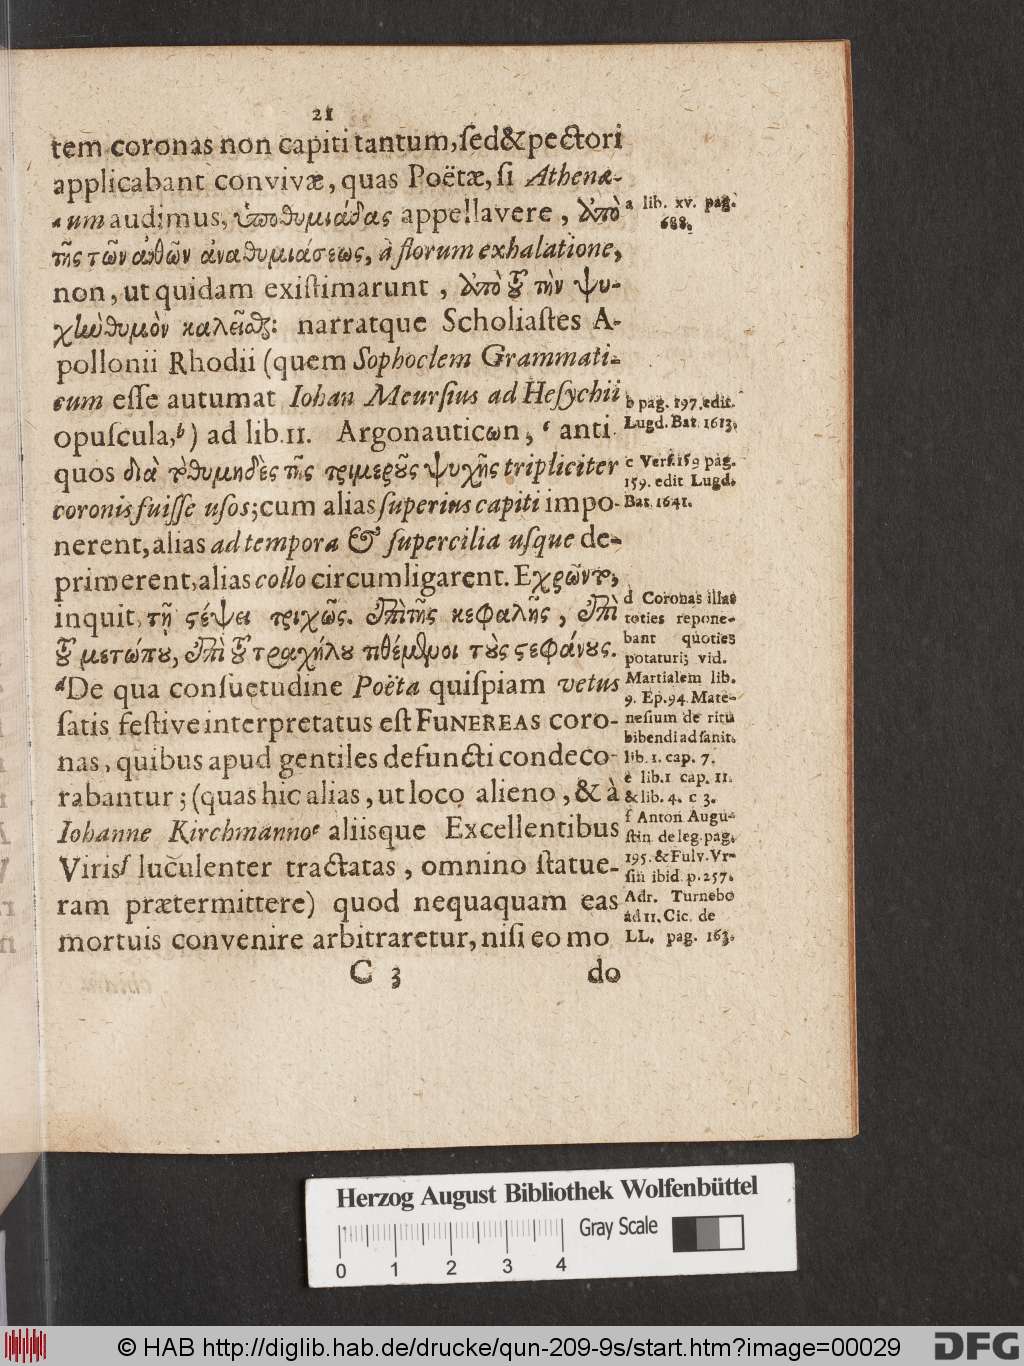 21
tem coronas non capiti tantum, ſed & pectori
applicabant convivæ, quas Poëtæ, ſi Athenæ-
um audimus, ὑποθυμιάδας appellavere, ἀπὸ
τῆς τῶν ἀνθῶν ἀναθυμιάσεως, à florum exhalatione,
non, ut quidam exiſtimarunt, ἀπὸ τοῦ τὴν ψυ-
χὴν θυμὸν καλεῖσθαι: narratque Scholiaſtes A-
pollonii Rhodii (quem Sophoclem Grammati-
cum eſſe autumat Iohan Meurſius ad Heſychii
opuſcula, b) ad lib. 11. Argonauticων, c anti-
quos διὰ τὸ θυμηδὲς τῆς τριμεροῦς ψυχῆς tripliciter
coronis fuiſſe uſos; cum alias ſuperius capiti impo-
nerent, alias ad tempora & ſupercilia uſque de-
primerent, alias collo circumligarent. Εχρῶντο,
inquit, τῇ στέψει τριχῶς. ἐπὶ τῆς κεφαλῆς, ἐπὶ
τοῦ μετώπου, ἐπὶ τοῦ τραχήλου τιθέμενοι τοὺς στεφάνους.
d De qua conſuetudine Poëta quiſpiam vetus
ſatis feſtive interpretatus eſt FUNEREAS coro-
nas, quibus apud gentiles defuncti condeco-
rabantur; (quas hic alias, ut loco alieno, & à
Iohanne Kirchmanno e aliisque Excellentibus
Viris f luculenter tractatas, omnino ſtatue-
ram prætermittere) quod nequaquam eas
mortuis convenire arbitraretur, niſi eo mo
C 3 do
a lib. xv. pag.
688.
b pag. 197. edit.
Lugd. Bat. 1613.
c Verſ. 159 pag.
159. edit Lugd.
Bat. 1641.
d Coronas illas
toties repone-
bant quoties
potaturi; vid.
Martialem lib.
9. Ep. 94. Mate-
neſium de ritu
bibendi ad ſanit.
lib. 1. cap. 7.
e lib. 1 cap. 11.
& lib. 4. c 3.
f Anton Augu-
ſtin. de leg. pag.
195. & Fulv. Vr-
ſin ibid. p. 257.
Adr. Turnebo
ad 11. Cic. de
LL. pag. 163.
Herzog August Bibliothek Wolfenbüttel
0 1 2 3 4 Gray Scale
© HAB http://diglib.hab.de/drucke/qun-209-9s/start.htm?image=00029
DFG